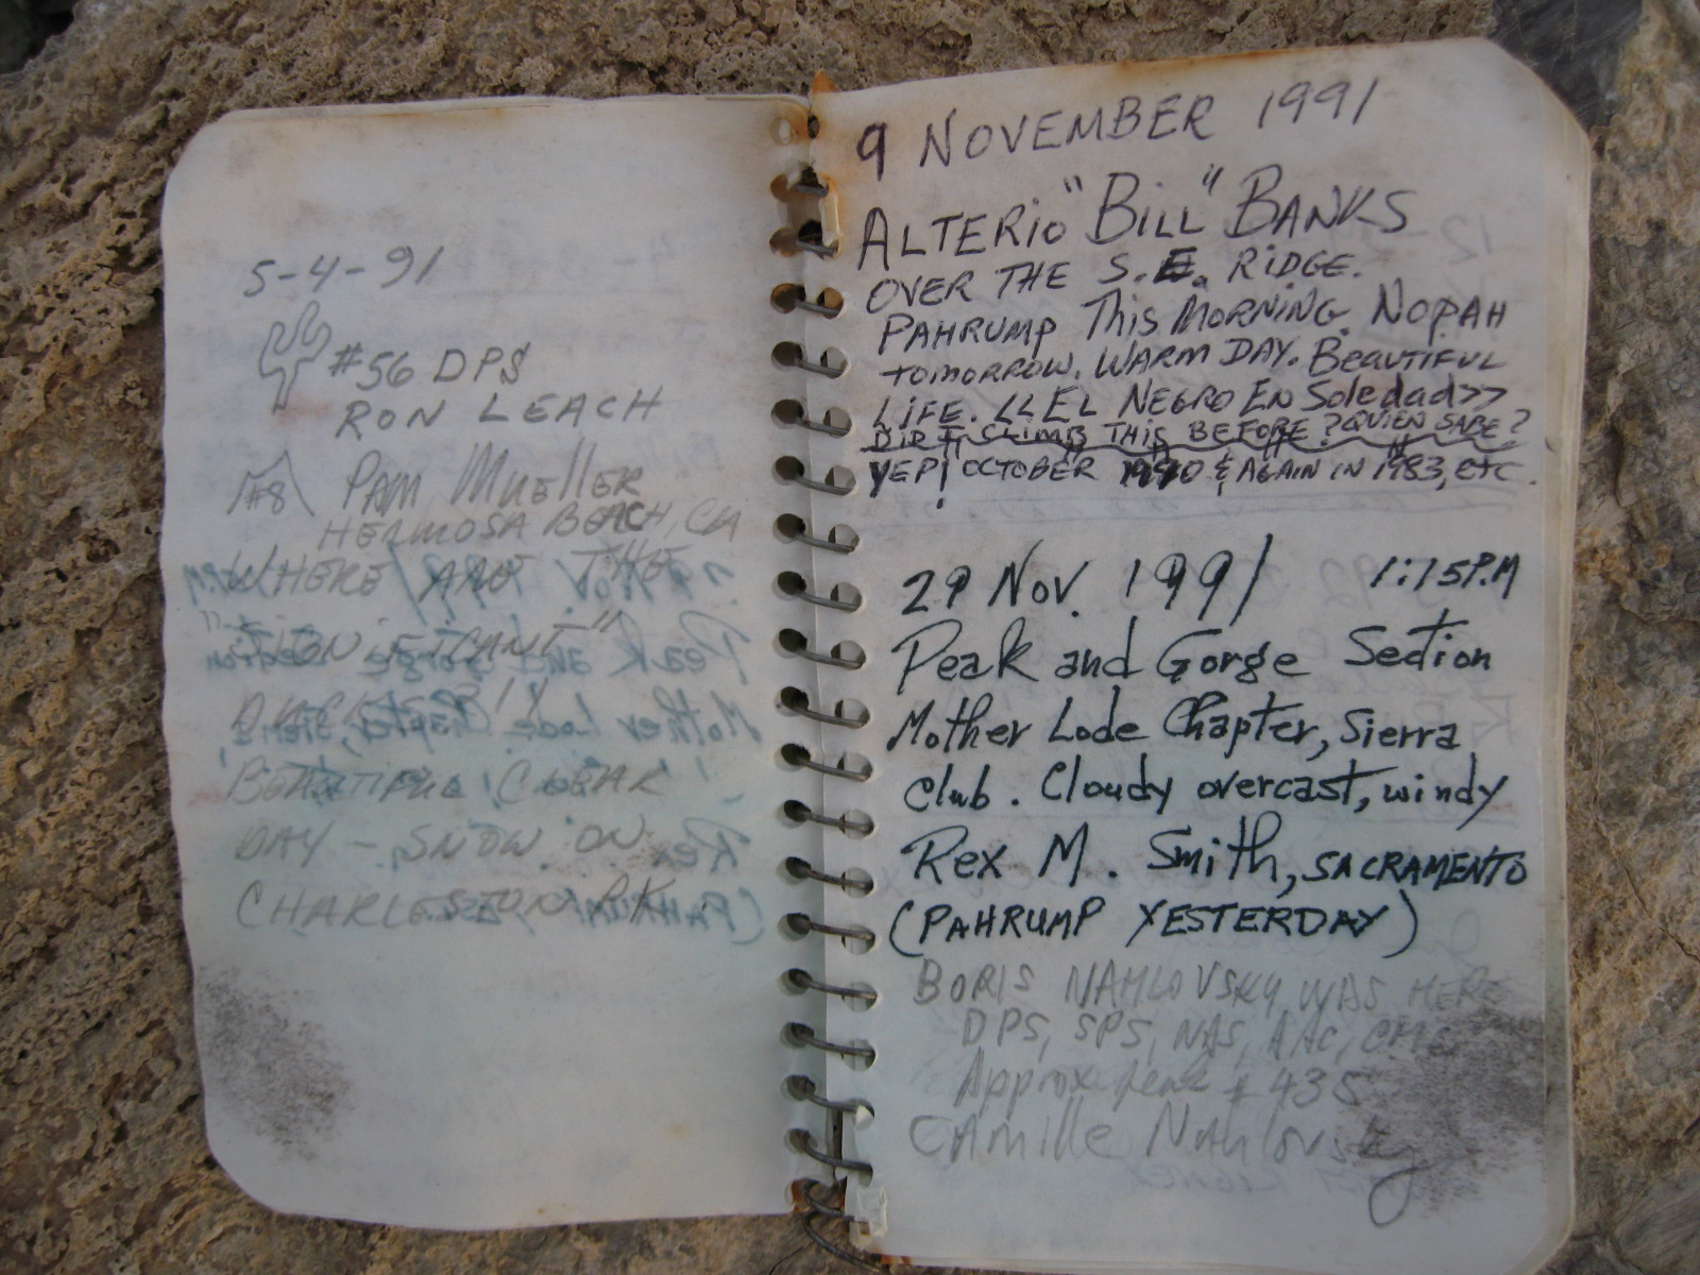 5-4-91
#56 DPS
RON LEACH
#8 PAM MUELLER
HERMOSA BEACH, CA
WHERE ARE THE
"SIGNIFICANT"
DUCKS?!!
BEAUTIFUL CLEAR
DAY - SNOW ON
CHARLESTON PK.
9 NOVEMBER 1991
ALTERIO "BILL" BANKS
OVER THE S.E. RIDGE.
PAHRUMP THIS MORNING. NOPAH
TOMORROW. WARM DAY. BEAUTIFUL
LIFE. <<EL NEGRO EN Soledad>>
DID I CLIMB THIS BEFORE? QUIEN SABE?
YEP! OCTOBER & AGAIN IN 1983, etc.
29 Nov. 1991 1:15 P.M
Peak and Gorge Section
Mother Lode Chapter, Sierra
Club. Cloudy overcast, windy
Rex M. Smith, SACRAMENTO
(PAHRUMP YESTERDAY)
BORIS NAHLOVSKY WAS HERE
DPS, SPS, NAS, AAC, CMC
Approx peak # 435
CAmille Nahlovsky